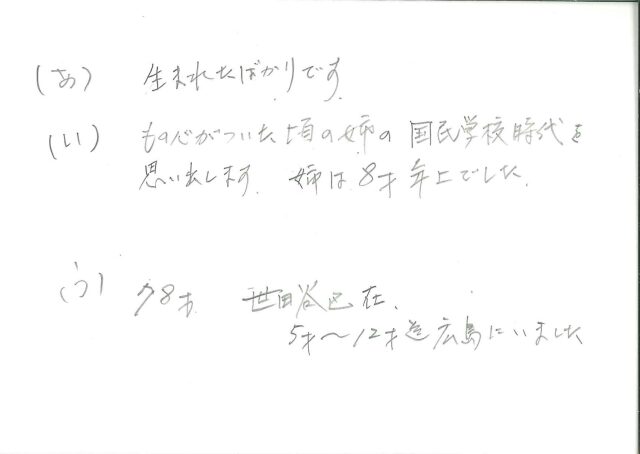 (あ) 生まれたばかりです
(い) もの心がついた頃の姉の国民学校時代を
思い出します. 姉は8才年上でした.
(う) 78才. 世田谷区在.
5才〜12才迄広島にいました